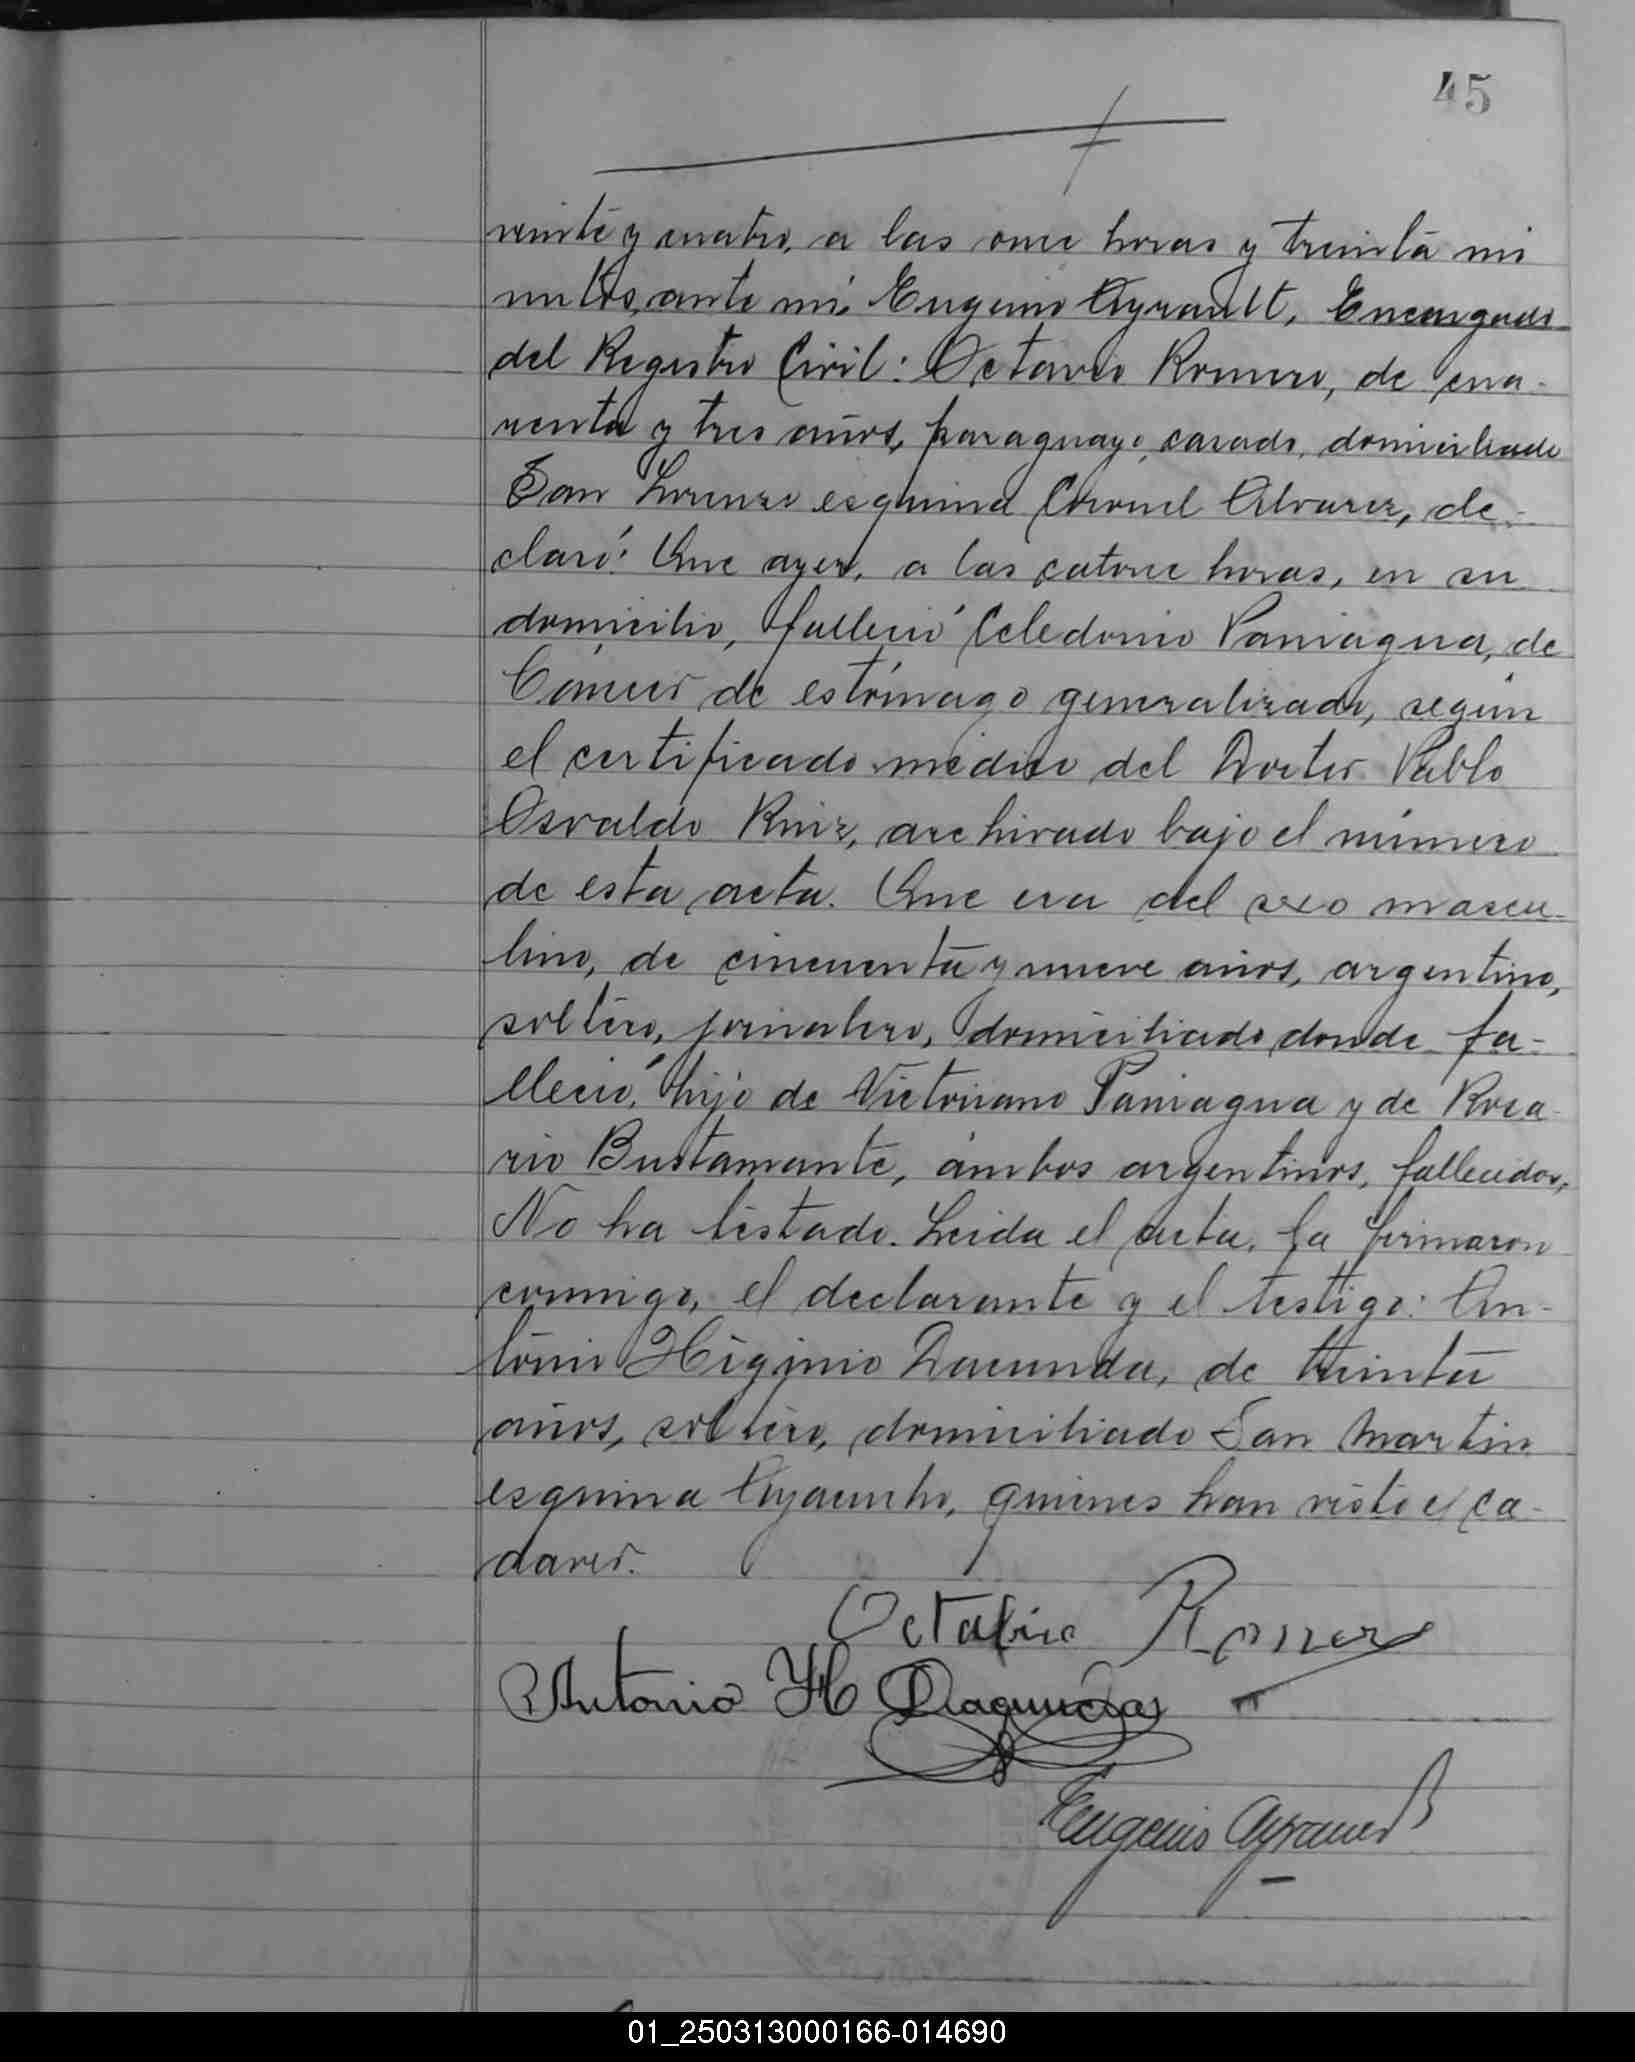 45
veinte y cuatro, a las once horas y treinta mi
nutos, ante mí, Eugenio Ayrault, Encargado
del Registro Civil: Octavio Romero, de cua-
renta y tres años, paraguayo, casado, domiciliado
San Lorenzo esquina Coronel Alvarez, de-
claró: Que ayer, a las catorce horas, en su
domicilio, falleció Celedonio Paniagua, de
Cáncer de estómago generalizado, según
el certificado médico del Doctor Pablo
Osvaldo Ruiz, archivado bajo el número
de esta acta. Que era del sexo mascu-
lino, de cincuenta y nueve años, argentino,
soltero, jornalero, domiciliado donde fa-
lleció, hijo de Victoriano Paniagua y de Rosa-
rio Bustamante, ámbos argentinos, fallecidos,
No ha testado. Leida el acta, la firmaron
conmigo, el declarante y el testigo: An-
tonio Higinio Dacunda, de treinta
años, soltero, domiciliado San Martin
esquina Ayacucho, quienes han visto el ca-
daver.
Octabio Romero
Antonio H Dacunda
Eugenio Ayrault
01_250313000166-014690